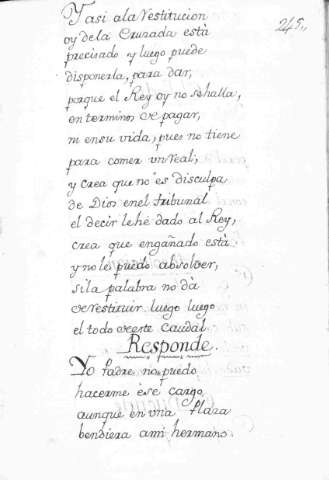 Y asi ala Restitucion
245,,
oy dela Cruzada está
precisado y luego puede
disponerla, para dar,
porque el Rey oy no sehalla,
en terminos de pagar,
ni en su vida, pues no tiene
para comer un real;
y crea que no es disculpa
de Dios enel tribunal
el decir lehé dado al Rey,
crea que engañado está
y nole puedo absolver,
sila palabra no dà
de restituir luego luego
el todo de este caudal
Responde.
Yo Padre no puedo
hacerme ése cargo
aunque en una Plaza
bendiera ami hermano.